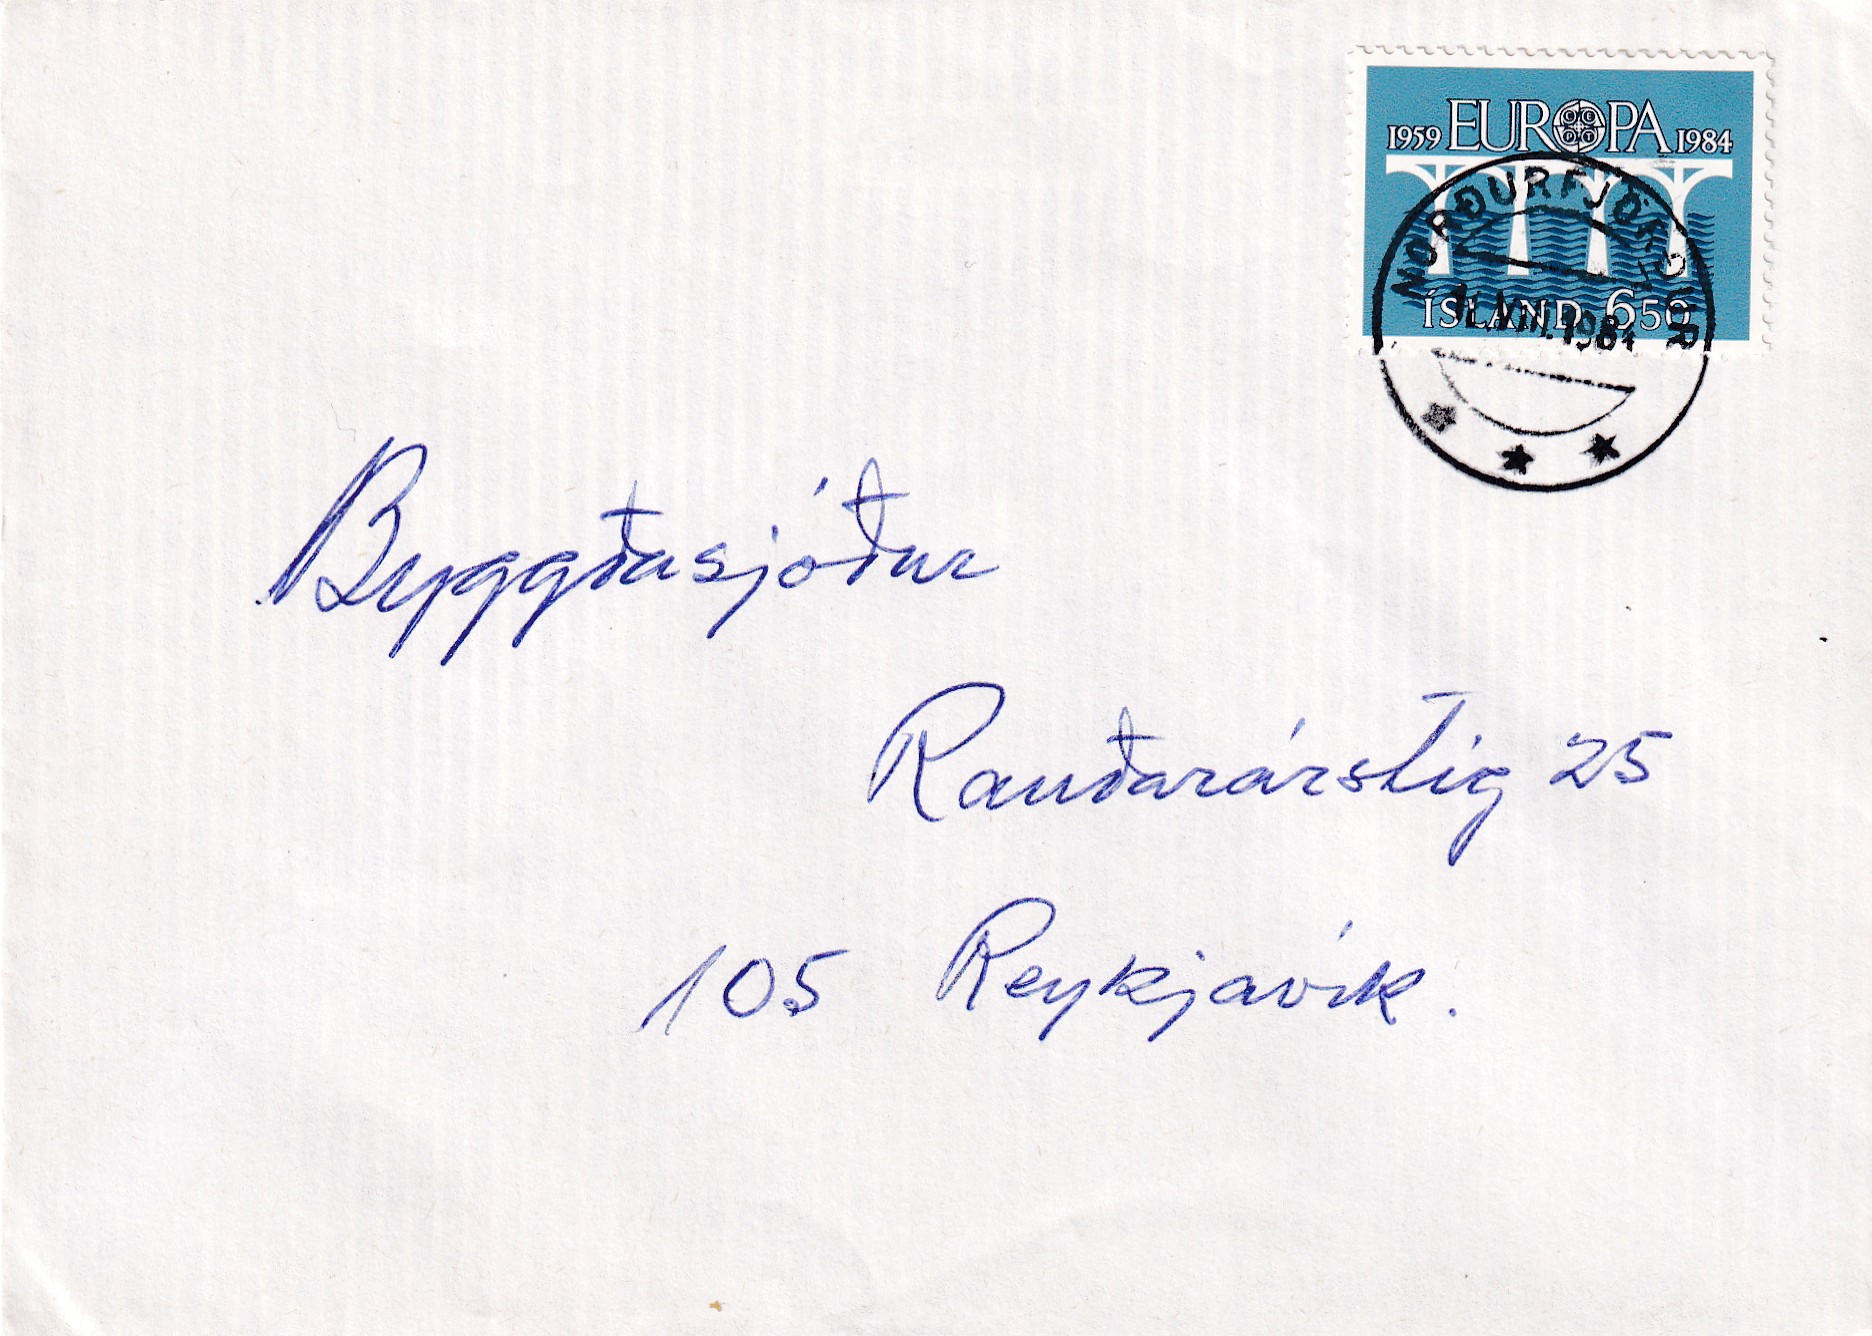 1959 EUROPA 1984
CEPT
ÍSLAND 650
NORÐURFJÖRÐUR
Byggðasjóður
Rauðarárstíg 25
105 Reykjavík.